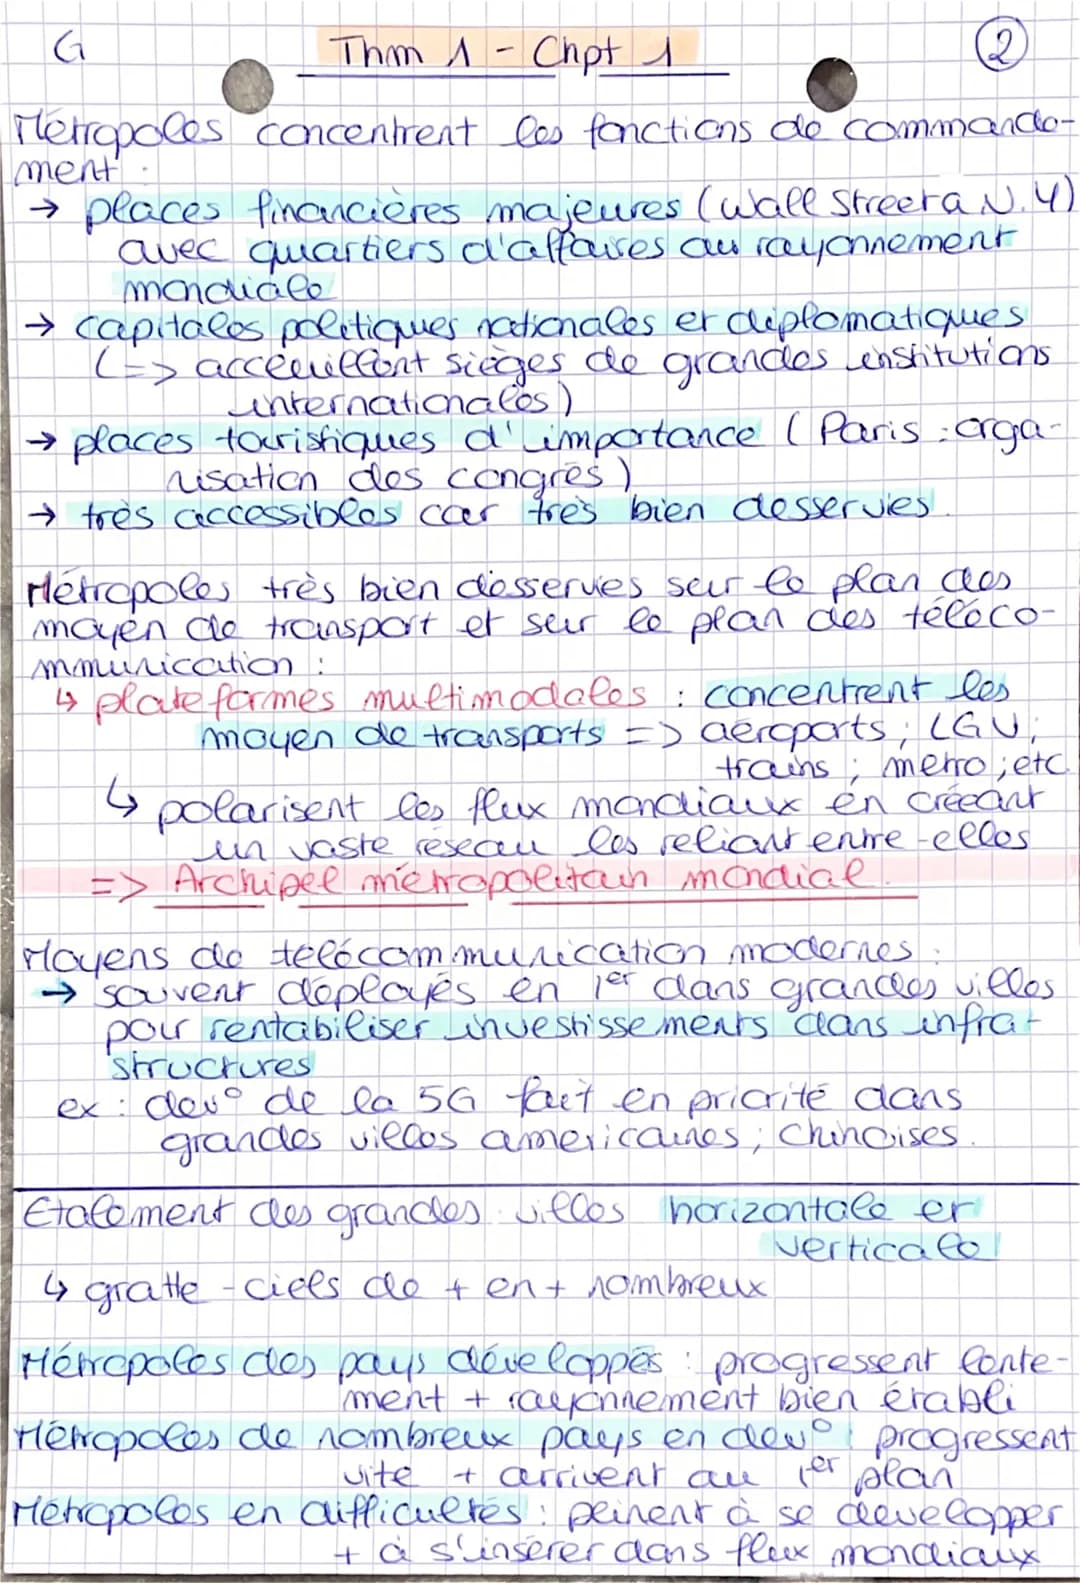 G Thm 1 - Chpt 1 2
Métropoles concentrent les fonctions de commande-
ment :
→ places financières majeures (Wall Street à N.Y)
avec quartiers d'affaires au rayonnement
mondiale
→ capitales politiques nationales et diplomatiques
(=> acceuillent sièges de grandes institutions
internationales)
→ places touristiques d'importance (Paris : orga-
nisation des congrès)
→ très accessibles car très bien desservies.
Métropoles très bien desservies sur le plan des
moyen de transport et sur le plan des téléco-
mmunication :
↳ plateformes multimodales : concentrent les
moyen de transports => aéroports ; LGV ;
trains ; métro ; etc
↳ polarisent les flux mondiaux en créeant
un vaste réseau les reliant entre-elles
=> Archipel métropolitain mondial.
Moyens de télécommunication modernes :
→ souvent déployés en 1er dans grandes villes
pour rentabiliser investissements dans infra-
structures
ex : dev° de la 5G fait en priorité dans
grandes villes américaines ; chinoises.
Etalement des grandes villes horizontale et
verticale
↳ gratte-ciels de + en + nombreux
Métropoles des pays développés : progressent lente-
ment + rayonnement bien établi
Métropoles de nombreux pays en dev° : progressent
vite + arrivent au 1er plan
Métropoles en difficultés : peinent à se developper
+ à s'insérer dans flux mondiaux